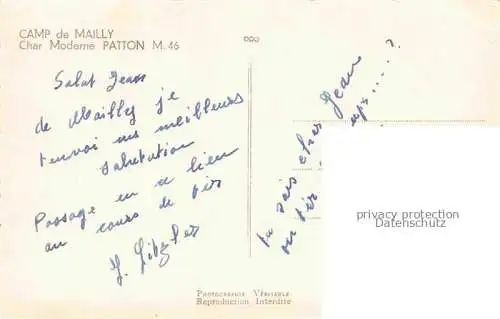 CAMP de MAILLY
Char Moderne PATTON M. 46
Salut Jean
de Mailly je
t'envoi mes meilleurs
salutation
Passage en ce lieu
au cours de tir
tu sais cher Jean
ou tir
PHOTOGRAPHIE VÉRITABLE
Reproduction Interdite
privacy protection
Datenschutz